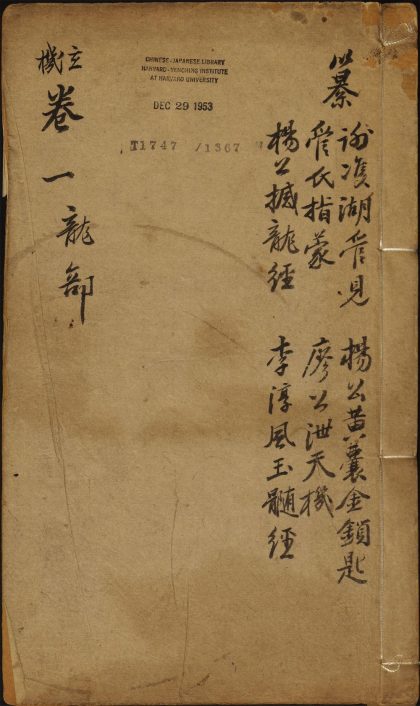 纂
謝雙湖管見 楊公黃囊金鎖匙
管氏指蒙 廖公泄天機
楊公撼龍經 李淳風玉髓經
CHINESE-JAPANESE LIBRARY
HARVARD-YENCHING INSTITUTE
AT HARVARD UNIVERSITY
DEC 29 1953
T1747 /1367
機
卷一龍部